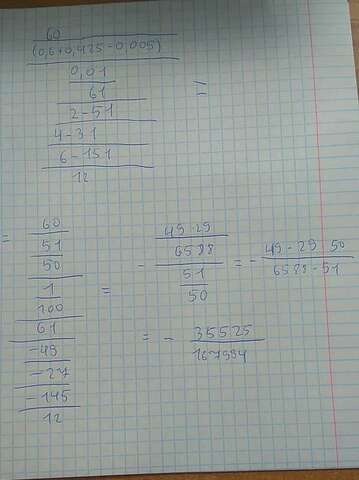 60
(0,6+0,425-0,005)
0,01
61
2-51
4-31
6-151
12
=
=
60
51
50
1
100
61
-49
-27
-145
12
=
-
49·29
6588
51
50
= -
49-29 50
6588-51
= -
35525
167994